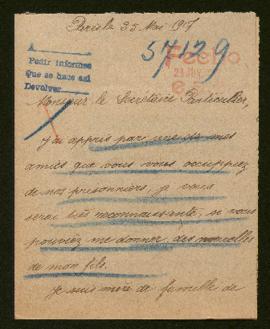 Paris le 25 Mai 1917
A
Pedir informes
Que se hace así
Devolver
57129
Fecho
Monsieur le Secrétaire Particulier,
j'ai appris par une de mes
amies que vous vous occuppiez
de nos prisonniers, je vous
serai bien reconnaissante, si vous
pouviez me donner des nouvelles
de mon fils.
Je suis mère de famille de